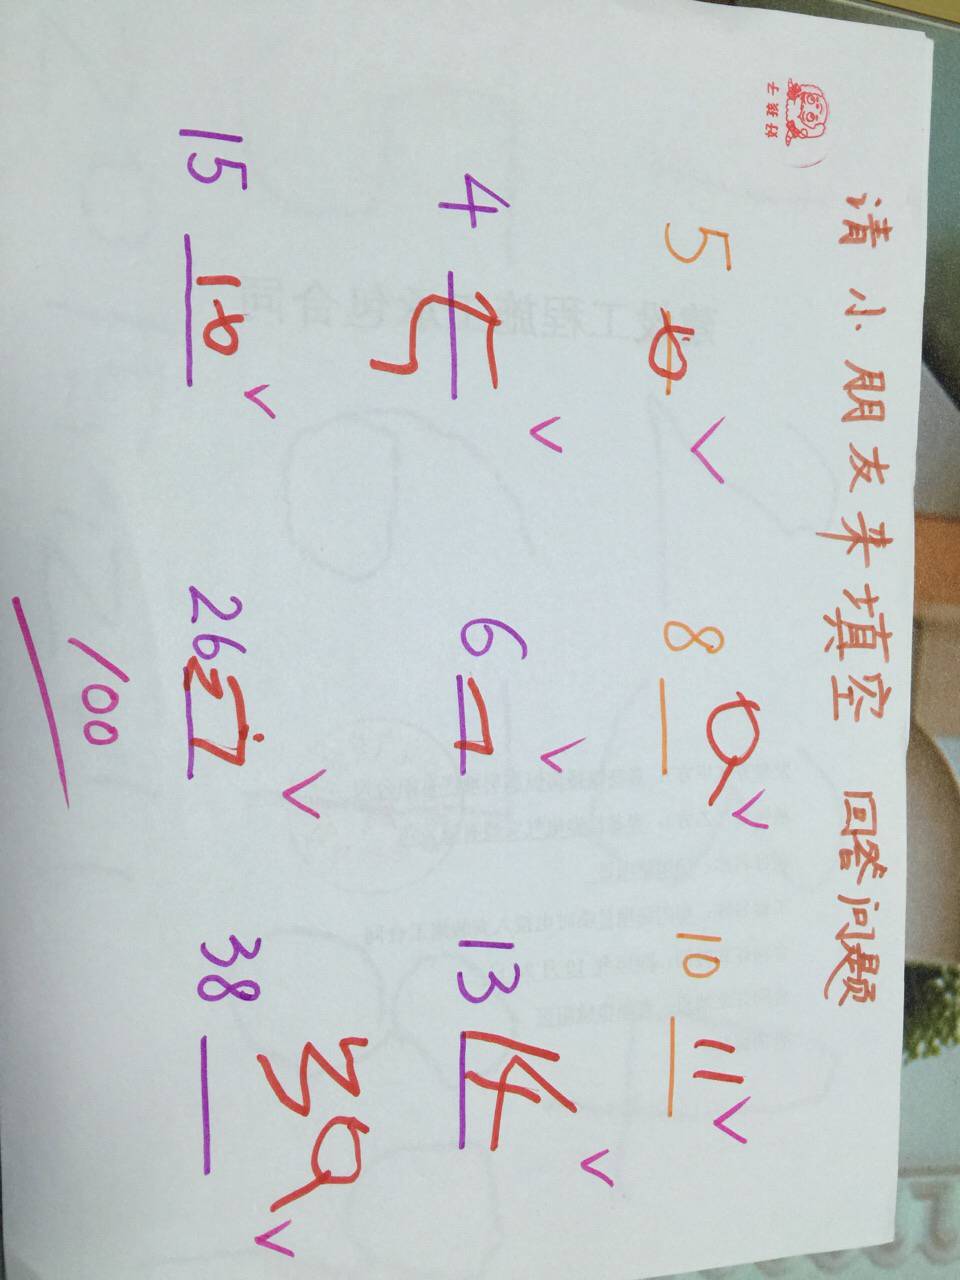 请小朋友来填空 回答问题
5 6 8 9 10 11
4 5 6 7 13 14
15 16 26 27 38 39
100